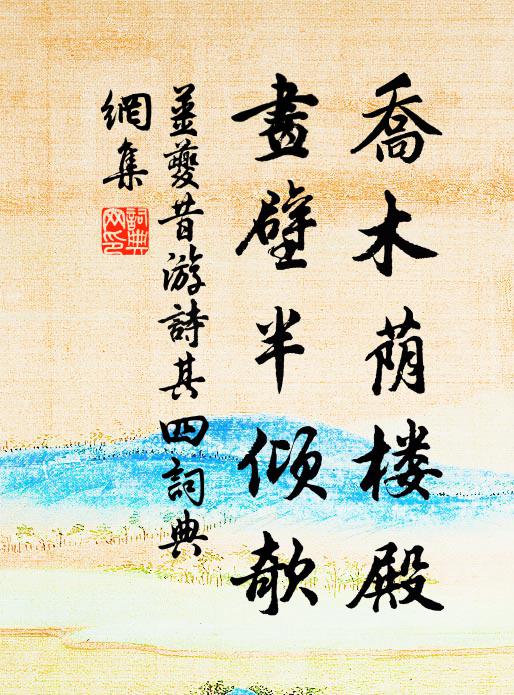 喬木荫楼殿
畫壁半倾欹
姜夔昔游詩其四詞典
網集
詞典
网印